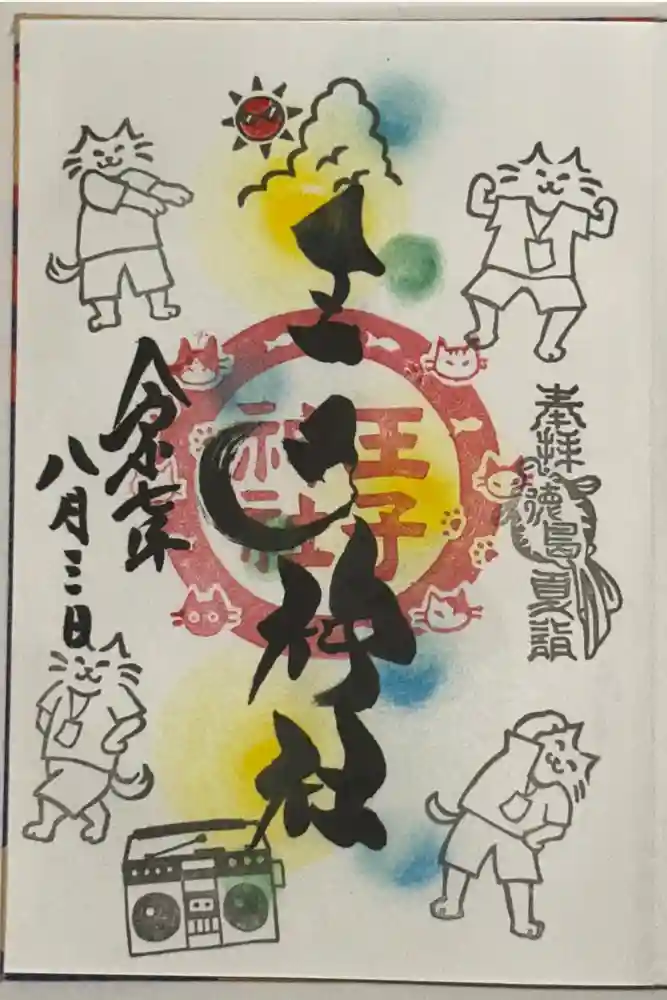 奉拝 徳島夏詣
王子神社
王子
神社
令和七年
八月三日